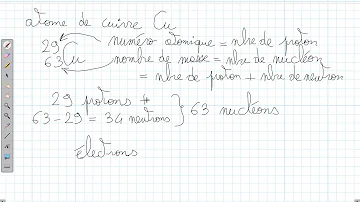 atome de cuivre Cu
29 numéro atomique = nbre de proton
63 Cu nombre de masse = nbre de nucléon
= nbre de proton + nbre de neutron
29 protons +
63 - 29 = 34 neutrons } 63 nucléons
électrons